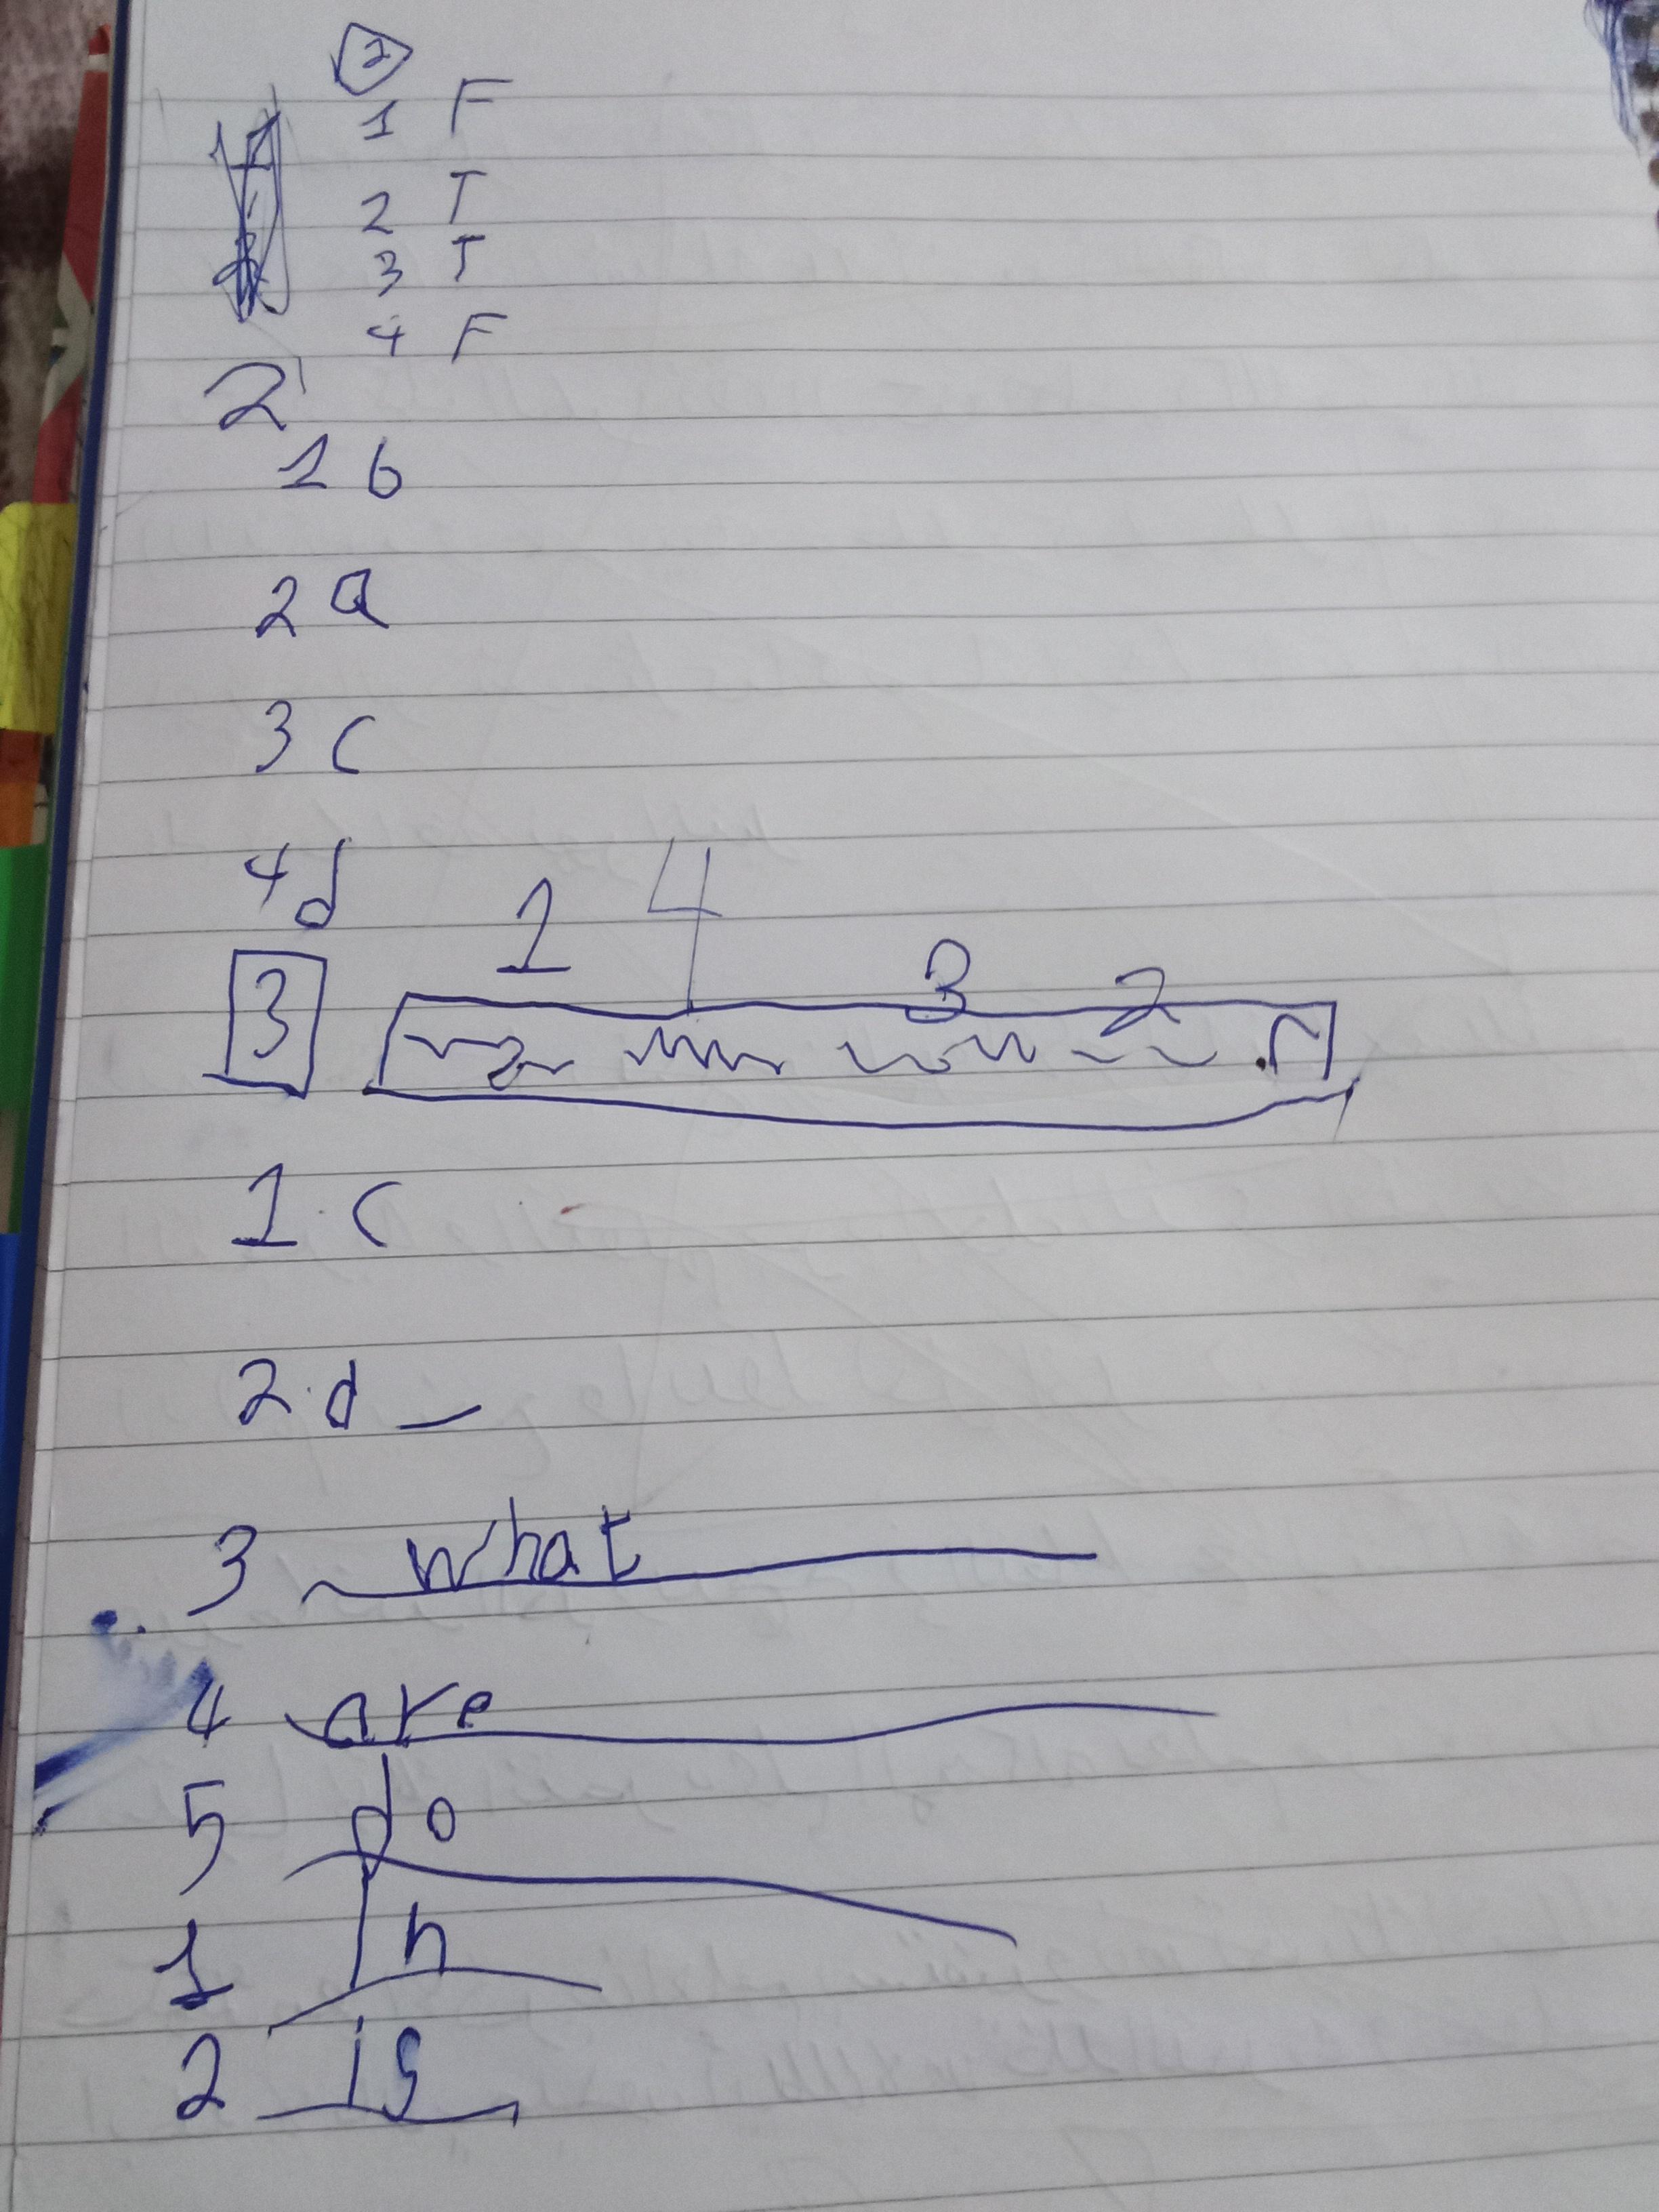 2
1 F
2 T
3 T
4 F
2
1 b
2 a
3 c
4 d
1 4 3 2
3
1. c
2. d
3 what
4 are
5 do
1 In
2 is